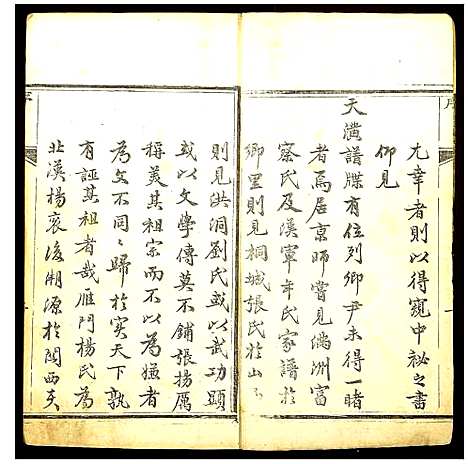 尤幸者則以得窺中祕之書
仰見
天潢譜牒有位列卿尹未得一睹
者焉居京師嘗見滿洲富
察氏及漢軍年氏家譜於
鄉里則見桐城張氏於山
則見洪洞劉氏或以武功顯
或以文學傳莫不鋪張揚厲
稱美其祖宗而不以為嫌者
為文不同同歸於實天下孰
有誣其祖者哉雁門楊氏為
北漢楊袞後溯源於關西夫
序